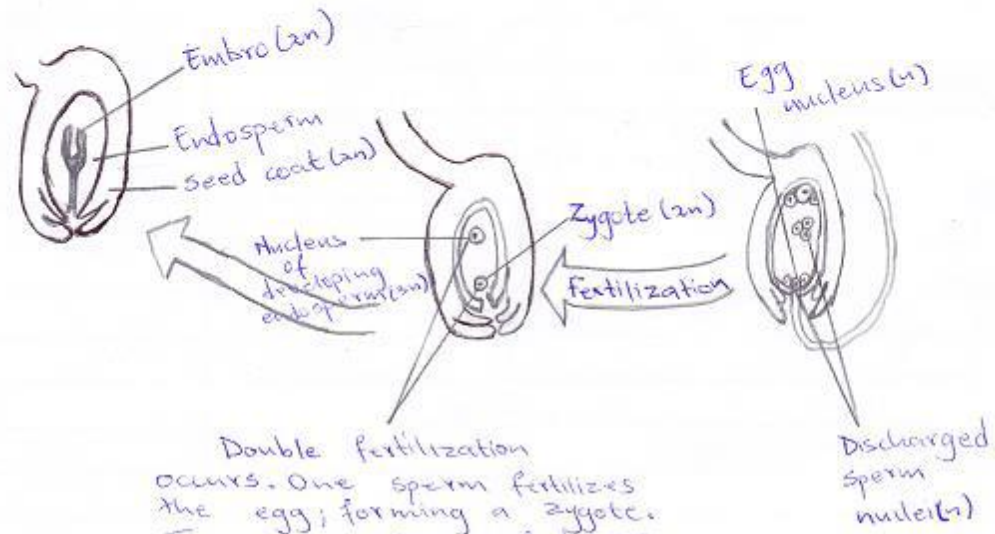 Embro(2n)
Endosperm
Seed coat(2n)
Nucleus
of
developing
endosperm(3n)
Zygote(2n)
Fertilization
Egg
nucleus(n)
Discharged
sperm
nuclei(n)
Double fertilization
occurs. One sperm fertilizes
the egg; forming a zygote.